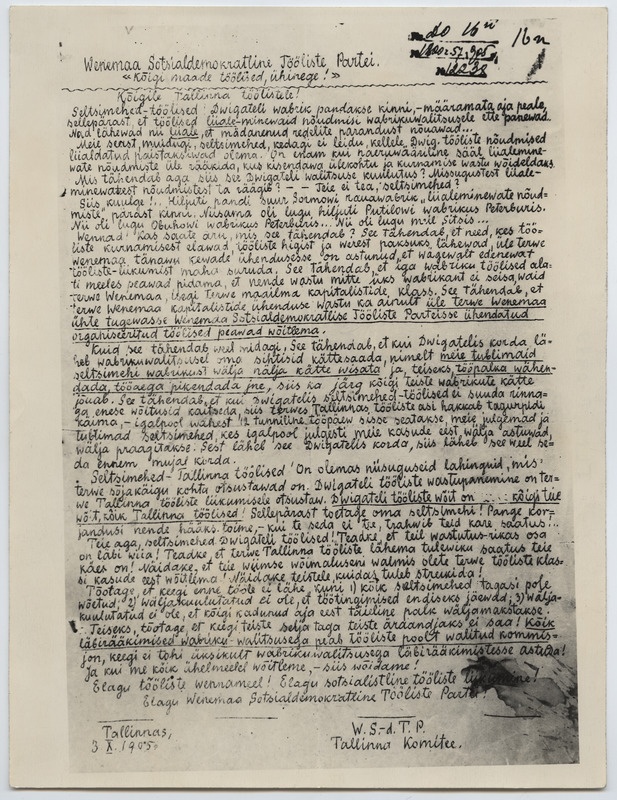 16 n
Wenemaa Sotsialdemokratline Tööliste Partei.
«Kõigi maade töölised, ühinege!»
Kõigile Tallinna töölistele!
Seltsimehed-töölised! Dwigateli wabrik pandakse kinni, – määramata aja peale,
sellepärast, et töölised liiale-minewaid nõudmisi wabrikuwalitsusele ette panewad.
Nad lähewad nii liiale, et mädanenud redelite parandust nõuawad...
Meie seast, muidugi, seltsimehed, kedagi ei leidu, kellele, Dwig. tööliste nõudmised
liialdatud paistaksiwad olema. On enam kui naruwäärtline sääl liialemine-
wate nõudmiste üle rääkida, kus kisendawa ülekohtu ja kurnamise wastu wõideldaks.
Mis tähendab aga siis see Dwigateli walitsuse kuulutus? Missugustest liiale-
minewatest nõudmistest ta räägib? – – Teie ei tea, seltsimehed?
Siis kuulge!.. Hiljuti pandi suur Sormowi rauawabrik „liialeminewate nõud-
miste" pärast kinni. Nusama oli lugu hiljuti Putilowi wabrikus Peterburis.
Nii oli lugu Obuhowi wabrikus Peterburis... Nii oli lugu meil Sitsis...
Wennad! Kas saate aru mis see tähendab? See tähendab, et need, kes töö-
liste kurnamisest elawad, tööliste higist ja werest paksuks lähewad, üle terwe
wenemaa tänawu kewade ühendusesse on astunud, et wägewalt edenewat
tööliste-liikumist maha suruda. See tähendab, et iga wabriku töölised ala-
ti meeles peawad pidama, et nende wastu mitte üks wabrikant ei seisa, waid
terwe Wenemaa, isegi terwe maailma kapitalistide klass. See tähendab, et
terwe Wenemaa kapitalistide ühenduse wastu ka ainult üle terwe Wenemaa
ühte tugewasse Wenemaa Sotsialdemokratlise Tööliste Parteisse ühendatud
organiseeritud töölised peawad wõitlema.
Kuid see tähendab weel midagi. See tähendab, et kui Dwigatelis korda lä-
heb wabrikuwalitsusel oma sihtisid kättesaada, nimelt meie tublimaid
seltsimehi wabrikust wälja nälja kätte wisata ja, teiseks, tööpalka wähen-
dada, tööaega pikendada jne, siis ka järg kõigi teiste wabrikute kätte
jõuab. See tähendab, et kui Dwigatelis seltsimehed-töölised ei suuda rinna-
ga enese wõitusid kaitseda, siis terwes Tallinnas tööliste asi hakkab tagurpidi
käima, – igalpool wähest 12 tunniline tööpäew sisse seatakse, meie julgemad ja
tublimad seltsimehed, kes igalpool julgesti meie kasude eest wälja astuwad,
wälja praagitakse. Sest läheb see Dwigatelis korda, siis läheb see weel se-
da ennem mujal korda.
Seltsimehed-Tallinna töölised! On olemas niisuguseid lahinguid, mis
terwe sõjakäigu kohta otsustawad on. Dwigateli tööliste wastupanemine on ter-
we Tallinna tööliste liikumisele otsustaw. Dwigateli tööliste wõit on ... kõigi tüe
wõit, kõik Tallinna töölised! Sellepärast toetage oma seltsimehi! Pange kor-
jandusi nende hääks toime, – kui te seda ei tee, trahwib teid kare saatus!..
Teie aga, seltsimehed Dwigateli töölised! Teadke, et teil wastutus-rikas osa
on läbi wiia! Teadke, et terwe Tallinna tööliste lähema tulewiku saatus teie
käes on! Näidake, et teie wiimse wõimaluseni walmis olete terwe tööliste klas-
si kasude eest wõitlema! Näidake teistele, kuidas tuleb streikida!
Tõotage, et keegi enne tööle ei lähe, kuni 1) kõik seltsimehed tagasi pole
wõetud, 2) wäljakuulutatud ei ole, et töötingimised endiseks jäewad; 3) wälja-
kuulutatud ei ole, et kõigi kadunud aja eest täieline palk wäljamakstakse.
Teiseks, tõotage, et keegi teiste selja taga teiste äraandjaks ei saa! Kõik
läbirääkimised wabriku-walitsusega peab tööliste poolt walitud kommis-
jon, keegi ei tohi üksikult wabrikuwalitsusega läbirääkimistesse astuda!
Ja kui me kõik ühelmeelel wõitleme, – siis wõidame!
Elagu tööliste wennameel! Elagu sotsialistline tööliste liikumine!
Elagu Wenemaa Sotsialdemokratline Tööliste Partei!
Tallinnas,
3 X. 1905.
W. S.-d. T. P.
Tallinna Komitee.